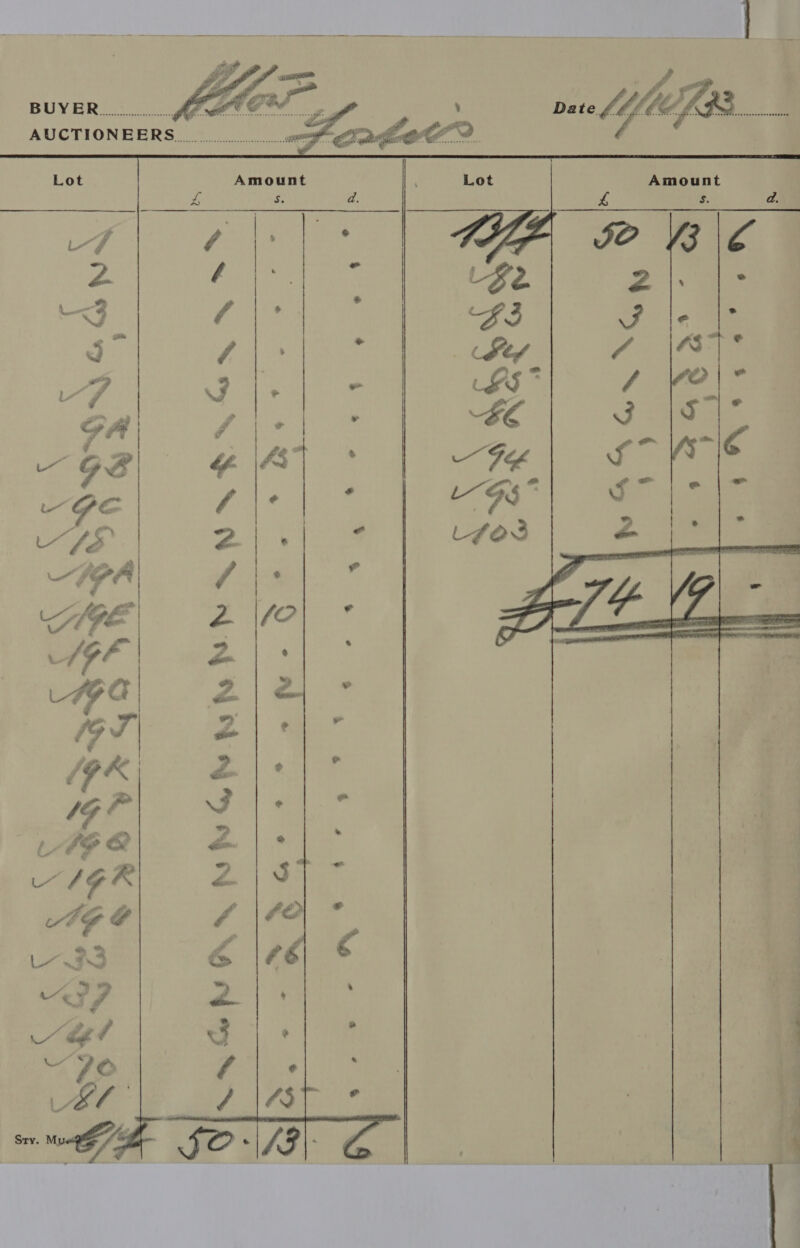 BUYER
Date
AUCTIONEERS
Lot Amount Lot Amount
£ s. d. £ s. d.
1 1 . .
2 1 . .
3 1 . .
5 1 . .
7 3 . .
9A 1 . .
9B 4 15 .
9C 1 . .
15 2 . .
19A 1 . .
19E 2 10 .
19F 2 . .
19G 2 2 .
19J 2 . .
19K 2 . .
19P 3 . .
19Q 2 . .
19R 2 5 .
1 10 .
33 6 16 6
37 2 . .
41 3 . .
70 1 . .
81 1 15 .
Sry. 50 . 13 . 6
50 13 6
82 2 . .
83 3 . .
84 1 15 .
85 1 10 .
86 3 5 .
94 5 15 6
95 5 . .
103 2 . .
£74 19 -